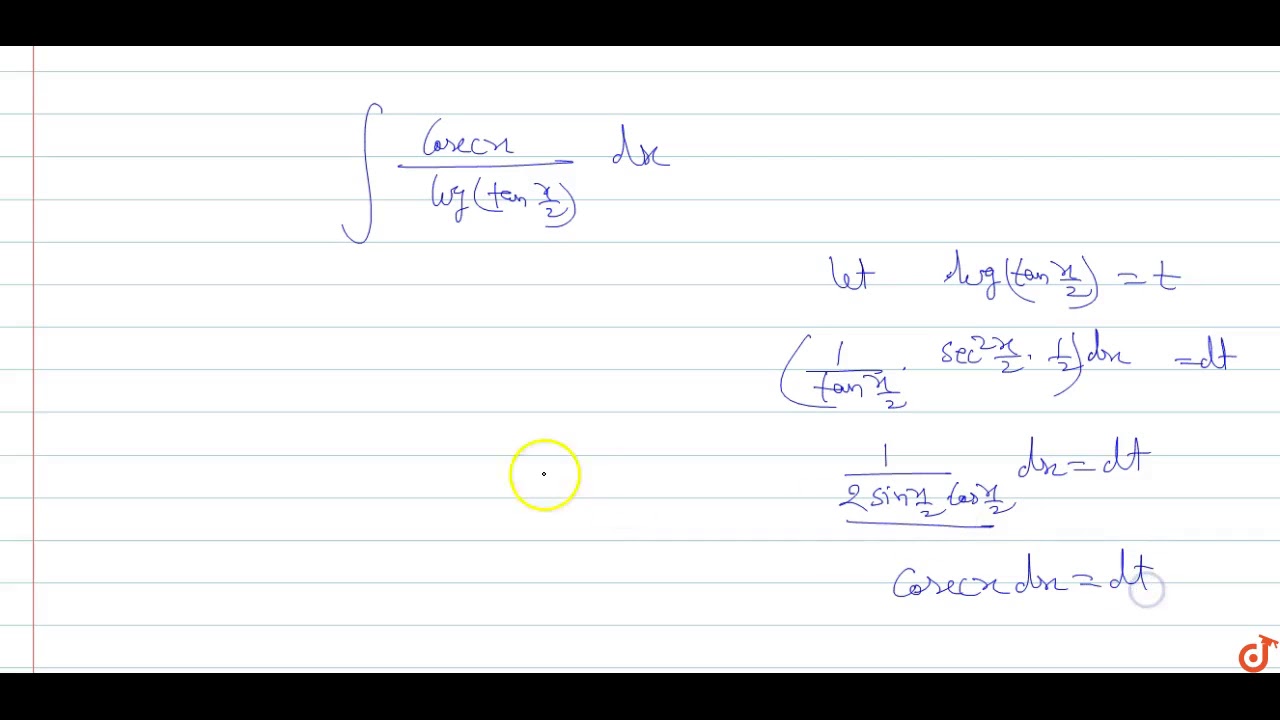 ∫ cosecx / log(tan x/2) dx
let log(tan x/2) = t
(1/tan x/2 · sec² x/2 · 1/2) dx = dt
1/(2 sin x/2 cos x/2) dx = dt
cosecx dx = dt